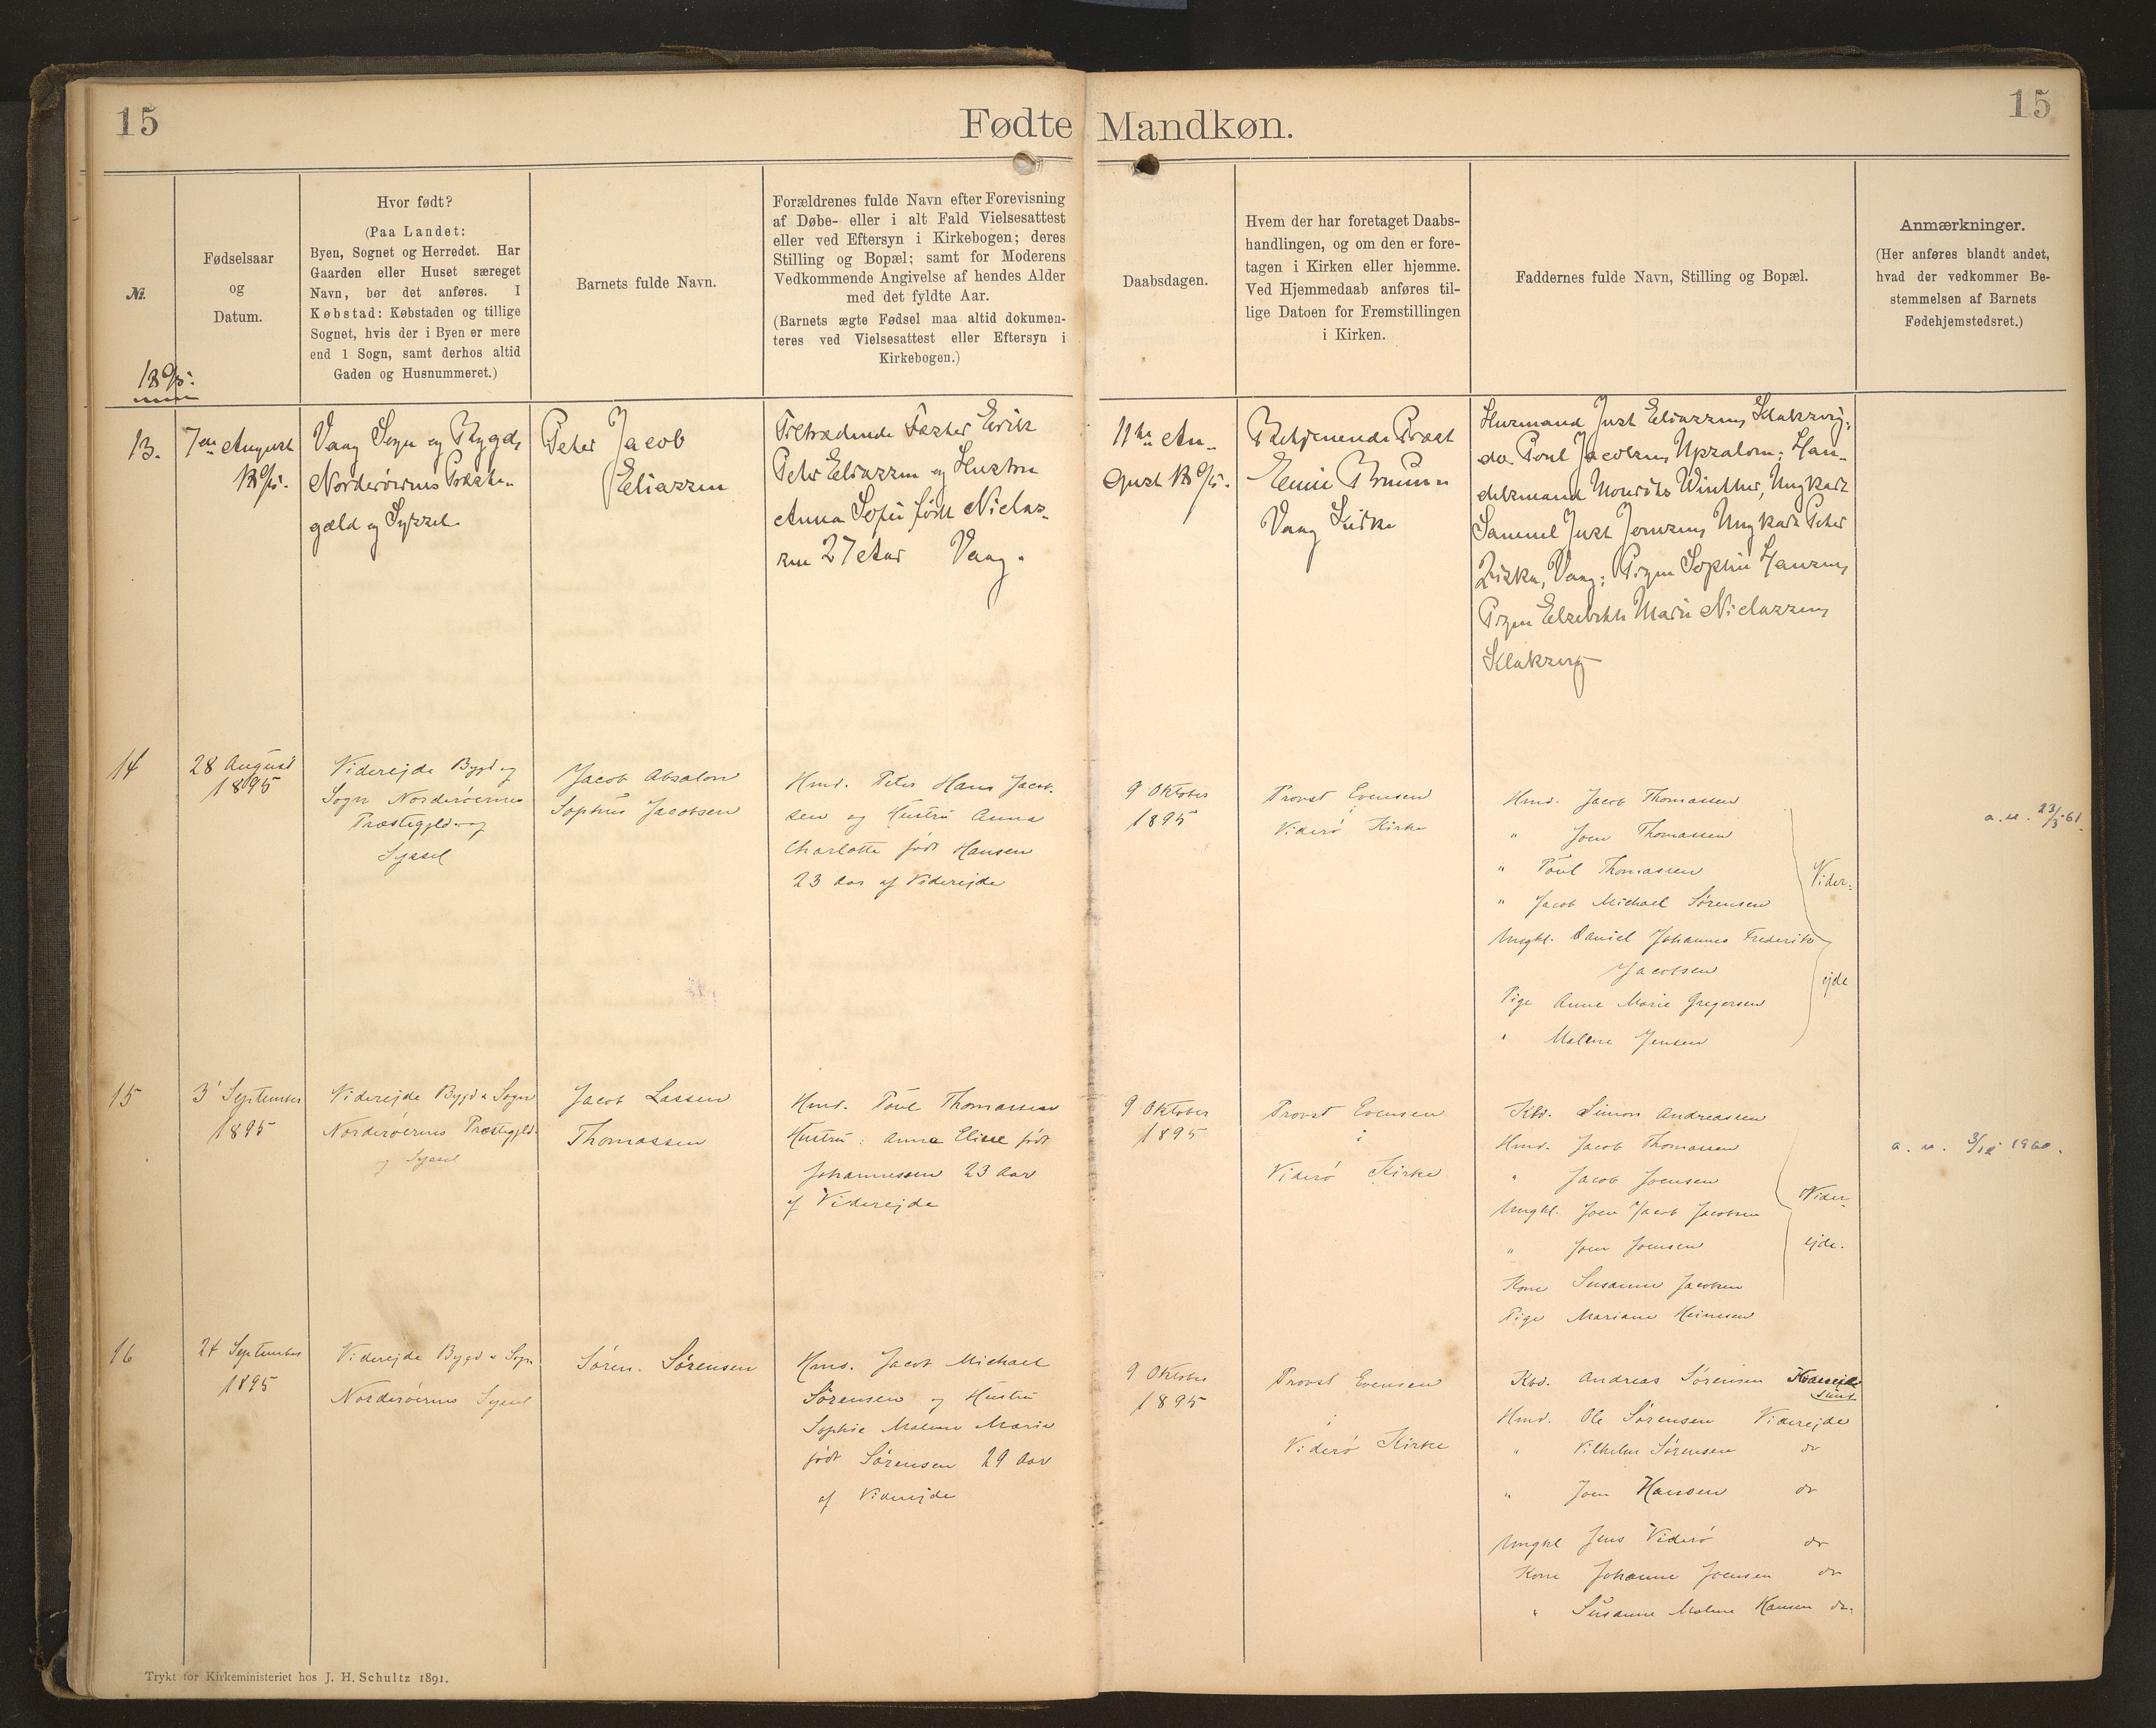 15
Fødte Mandkøn.
15
Nr.
Fødselsaar
og
Datum.
Hvor født?
(Paa Landet:
Byen, Sognet og Herredet. Har
Gaarden eller Huset særeget
Navn, bør det anføres. I
Købstad: Købstaden og tillige
Sognet, hvis der i Byen er mere
end 1 Sogn, samt derhos altid
Gaden og Husnummeret.)
Barnets fulde Navn.
Forældrenes fulde Navn efter Forevisning
af Døbe- eller i alt Fald Vielsesattest
eller ved Eftersyn i Kirkebogen; deres
Stilling og Bopæl; samt for Moderens
Vedkommende Angivelse af hendes Alder
med det fyldte Aar.
(Barnets ægte Fødsel maa altid dokumen-
teres ved Vielsesattest eller Eftersyn i
Kirkebogen.)
Daabsdagen.
Hvem der har foretaget Daabs-
handlingen, og om den er fore-
tagen i Kirken eller hjemme.
Ved Hjemmedaab anføres til-
lige Datoen for Fremstillingen
i Kirken.
Faddernes fulde Navn, Stilling og Bopæl.
Anmærkninger.
(Her anføres blandt andet,
hvad der vedkommer Be-
stemmelsen af Barnets
Fødehjemstedsret.)
1895:
13.
7de August
1895.
Vaag Sogn og Bygd,
Norderøernes Præste-
gæld og Syssel
Peter Jacob
Eliassen
Tiltrædende Fæster Erik
Peter Eliassen og Hustru
Anna Sofie født Niclas-
sen 27 Aar Vaag.
11te Au-
gust 1895.
Betjenende Præst
Emil Bruun
Vaag Kirke
Husmand Just Eliassen, Klaksvig;
do. Poul Jacobsen, Upsalom; Han-
delsmand Mourits Winther, Ungkarl
Samuel Just Joensen, Ungkarl Peter
Ziska, Vaag; Pigen Sophie Hansen,
Pigen Elsebeth Marie Niclassen,
Klaksvig
14
28 August
1895
Viderejde Bygd og
Sogn Norderøernes
Præstegjeld og
Syssel
Jacob Absalon
Sophus Jacobsen
Hmd. Peter Hans Jacob-
sen og Hustru Anna
Charlotte født Hansen
23 Aar af Viderejde
9 Oktober
1895
Provst Evensen
i
Viderø Kirke
Hmd. Jacob Thomassen
" Joen Thomassen
" Poul Thomassen
" Jacob Michael Sørensen
Ungkl. Daniel Johannes Frederik
Jacobsen
Pige Anne Marie Gregersen
" Malene Jensen
Vider-
ejde
a.u. 23/3-61.
15
3' September
1895
Viderejde Bygd & Sogn
Norderøernes Præstegjeld
og Syssel
Jacob Lassen
Thomassen
Hmd. Poul Thomassen
Hustru: Anna Elisse født
Johannessen 23 Aar
af Viderejde
9 Oktober
1895
Provst Evensen
i
Viderø Kirke
Kbd. Simon Andreassen
Hmd. Jacob Thomassen
" Jacob Joensen
Ungkl. Joen Jacob Jacobsen
" Joen Joensen
Kone Susanne Jacobsen
Pige Mariane Heinesen
Vider-
ejde.
a. u. 1960.
16
24 September
1895
Viderejde Bygd & Sogn
Norderøernes Syssel
Søren. Sørensen
Hmd. Jacob Michael
Sørensen og Hustru
Sophie Malene Marie
født Sørensen 29 Aar
af Viderejde
9 Oktober
1895
Provst Evensen
i
Viderø Kirke
Kbd. Andreas Sørensen
sund
Hmd. Ole Sørensen Viderejde
" Vilhelm Sørensen do
" Joen Hansen do
Ungkl Jens Viderø do
Kone Johanne Joensen do
" Susanne Malene Hansen do.
Trykt for Kirkeministeriet hos J. H. Schultz 1891.